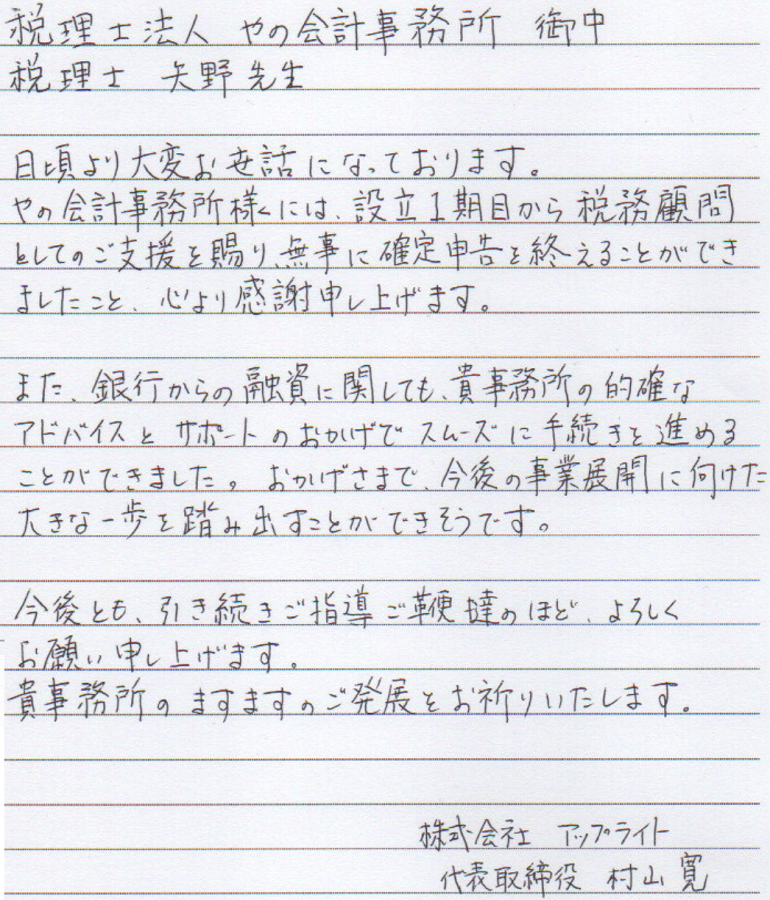 税理士法人 やの会計事務所 御中
税理士 矢野先生
日頃より大変お世話になっております。
やの会計事務所様には、設立1期目から税務顧問
としてのご支援を賜り、無事に確定申告を終えることができ
ましたこと、心より感謝申し上げます。
また、銀行からの融資に関しても、貴事務所の的確な
アドバイスとサポートのおかげでスムーズに手続きを進める
ことができました。おかげさまで、今後の事業展開に向けた
大きな一歩を踏み出すことができそうです。
今後とも、引き続きご指導ご鞭撻のほど、よろしく
お願い申し上げます。
貴事務所のますますのご発展をお祈りいたします。
株式会社 アップライト
代表取締役 村山 寛